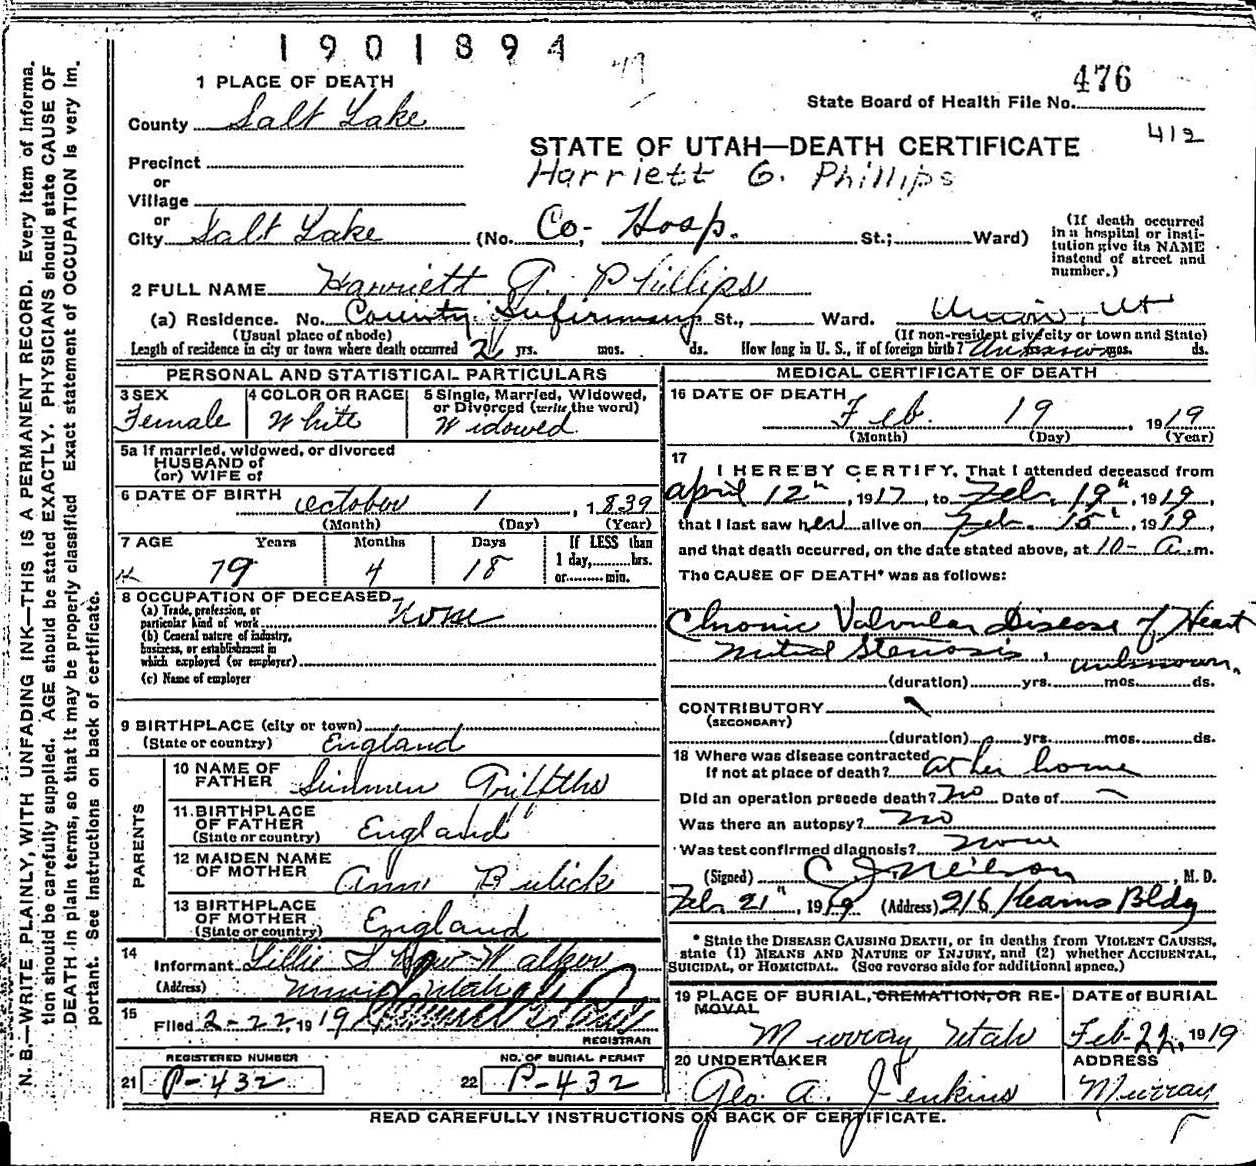 1901894
476
1 PLACE OF DEATH
State Board of Health File No.
County Salt Lake
412
STATE OF UTAH—DEATH CERTIFICATE
Harriett G. Phillips
Precinct
or
Village
or
City Salt Lake (No. Co. Hosp. St.; Ward)
(If death occurred in a hospital or institution give its NAME instead of street and number.)
2 FULL NAME Harriett G. Phillips
(a) Residence. No. County Infirmary St., Ward. Union, Ut
(Usual place of abode) (If non-resident give city or town and State)
Length of residence in city or town where death occurred 2 yrs. mos. ds. How long in U. S., if of foreign birth? Unknown mos. ds.
PERSONAL AND STATISTICAL PARTICULARS
3 SEX Female
4 COLOR OR RACE White
5 Single, Married, Widowed, or Divorced (write the word) Widowed
5a If married, widowed, or divorced
HUSBAND of
(or) WIFE of
6 DATE OF BIRTH October 1, 1839
(Month) (Day) (Year)
7 AGE Years Months Days If LESS than
79 4 18 1 day, hrs.
or min.
8 OCCUPATION OF DECEASED
(a) Trade, profession, or
particular kind of work None
(b) General nature of industry,
business, or establishment in
which employed (or employer)
(c) Name of employer
9 BIRTHPLACE (city or town)
(State or country) England
PARENTS
10 NAME OF FATHER Griffths
11 BIRTHPLACE OF FATHER England
(State or country)
12 MAIDEN NAME OF MOTHER Ann Bulick
13 BIRTHPLACE OF MOTHER England
(State or country)
14 Informant Lillie Walker
(Address) Utah
15 Filed 2-22, 1919
REGISTRAR
REGISTERED NUMBER
21 P-432
NO. OF BURIAL PERMIT
22 P-432
MEDICAL CERTIFICATE OF DEATH
16 DATE OF DEATH Feb. 19, 1919
(Month) (Day) (Year)
17 I HEREBY CERTIFY, That I attended deceased from
April 12th, 1917, to Feb. 19th, 1919,
that I last saw her alive on Feb. 15, 1919,
and that death occurred, on the date stated above, at 10- A. m.
The CAUSE OF DEATH* was as follows:
Chronic Valvular Disease of Heart
Mitral Stenosis. unknown.
(duration) yrs. mos. ds.
CONTRIBUTORY
(SECONDARY)
(duration) yrs. mos. ds.
18 Where was disease contracted
If not at place of death? at her home
Did an operation precede death? No Date of
Was there an autopsy? No
Was test confirmed diagnosis? None
(Signed) C J Neilson, M. D.
Feb. 21st, 1919 (Address) 216 Kearns Bldg
* State the DISEASE CAUSING DEATH, or in deaths from VIOLENT CAUSES,
state (1) MEANS AND NATURE OF INJURY, and (2) whether ACCIDENTAL,
SUICIDAL, or HOMICIDAL. (See reverse side for additional space.)
19 PLACE OF BURIAL, CREMATION, OR REMOVAL
Murray Utah
DATE of BURIAL
Feb-22, 1919
20 UNDERTAKER
Geo. A. Jenkins
ADDRESS
Murray
READ CAREFULLY INSTRUCTIONS ON BACK OF CERTIFICATE.
N. B.—WRITE PLAINLY, WITH UNFADING INK—THIS IS A PERMANENT RECORD. Every item of informa-
tion should be carefully supplied. AGE should be stated EXACTLY. PHYSICIANS should state CAUSE OF
DEATH in plain terms, so that it may be properly classified. Exact statement of OCCUPATION is very im-
portant. See instructions on back of certificate.